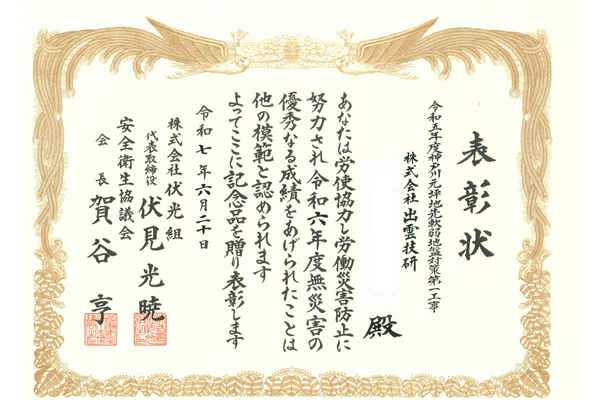 表彰状
令和五年度神戸川元坪地先軟弱地盤対策第一工事
株式会社 出雲技研
殿
あなたは労使協力し労働災害防止に
努力され令和六年度無災害の
優秀なる成績をあげられたことは
他の模範と認められます
よってここに記念品を贈り表彰します
令和七年六月二十日
株式会社 伏光組
代表取締役 伏見光暁
安全衛生協議会
会長 賀谷 亨